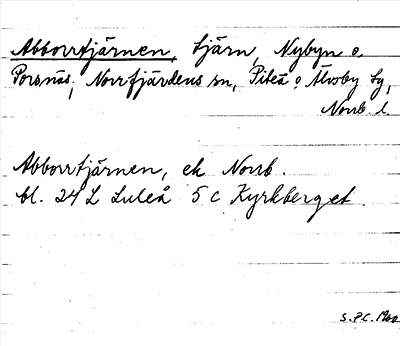 Abborrtjärnen, tjärn, Nybyn o.
Porsnäs, Norrfjärdens sn, Piteå o Älvsby tg,
Norrb. l.
Abborrtjärnen, ek Norrb.
bl. 24 L Luleå 5 c Kyrkberget.
S.P.C. 1960